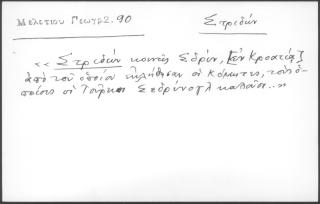 Μελετίου Γεωγρ2. 90
Στριδών
«Στριδών κοινῶς Σδρίν, [ἐν Κροατίᾳ]
ἀπὸ τοῦ ὁποίου ἐκλήθησαν οἱ Κόμητες, τοὺς ὁ-
ποίους οἱ Τοῦρκοι Σεδρίνογλ καλοῦσι..»